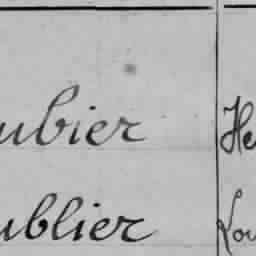 ubier He
ublier Lou